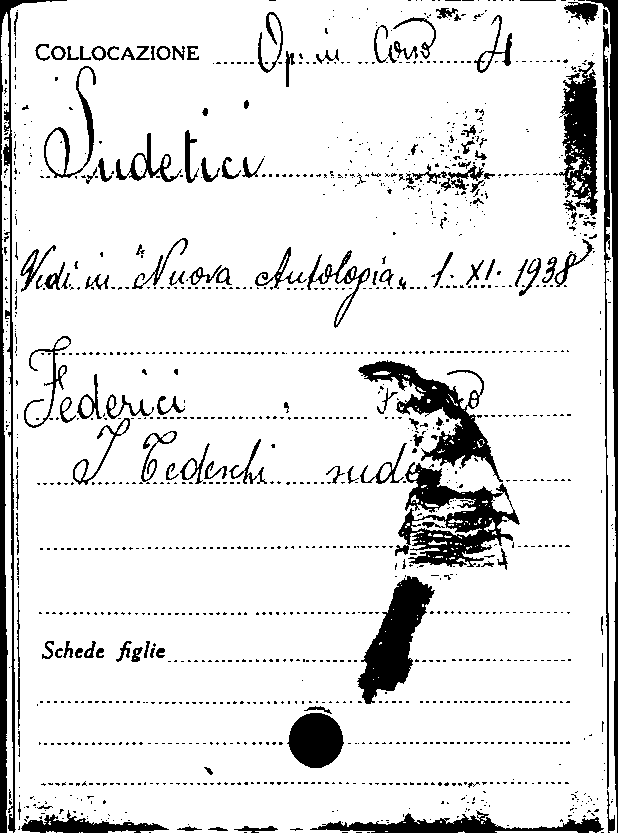 COLLOCAZIONE Op. in Corso 21
Sudetici
Vedi in "Nuova Antologia" 1. XI. 1938
Federici
I Tedeschi
Schede figlie